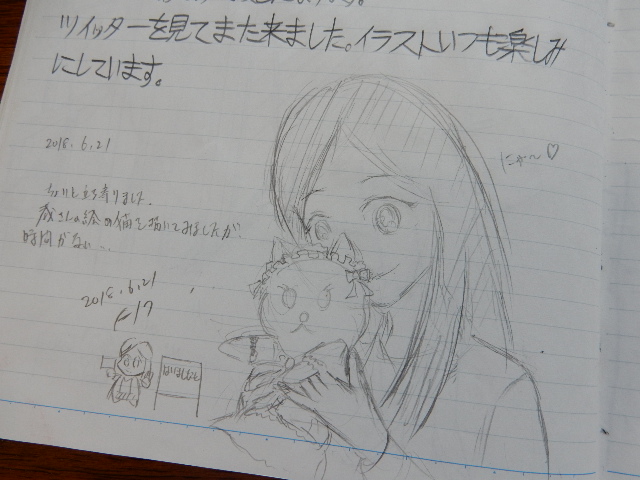 ツイッターを見てまた来ました。イラストいつも楽しみ
にしています。
2018.6.21
にゃ～♡
ちょいと立ち寄りました。
さんの絵の猫を描いてみましたが、
時間がない…
2018.6.21